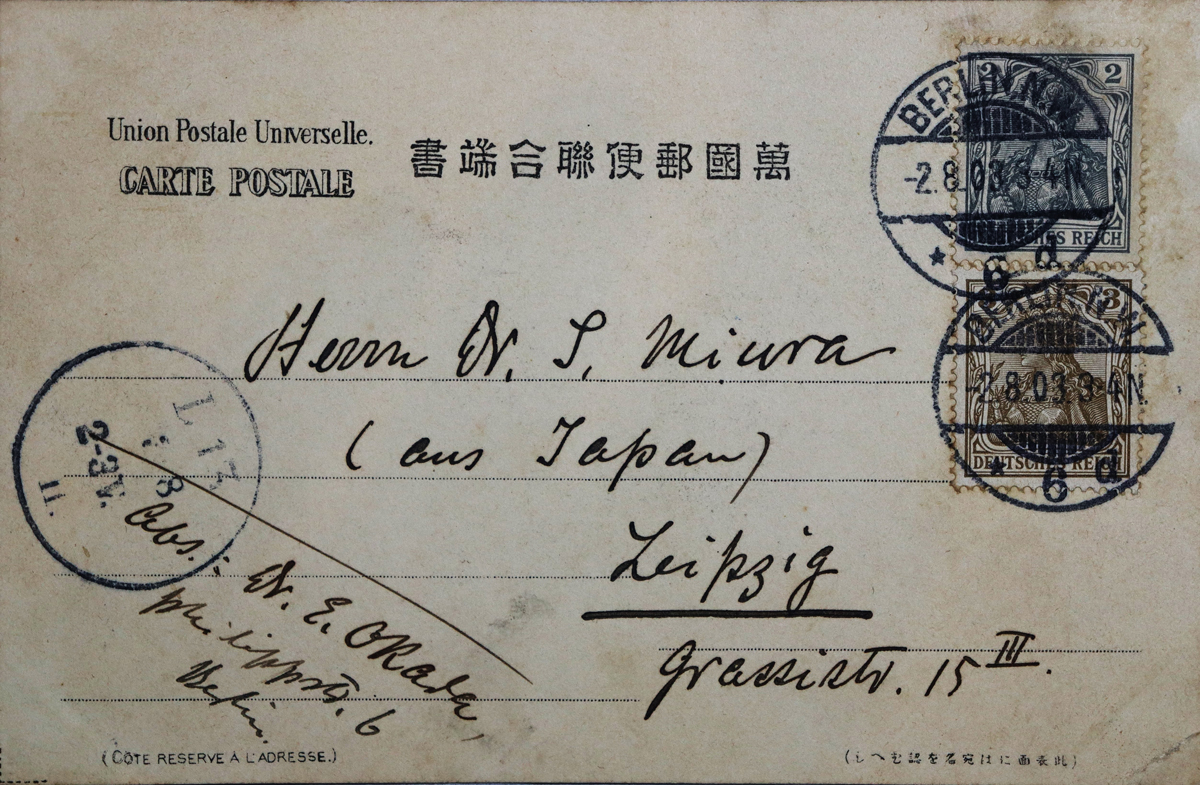 Union Postale Universelle.
CARTE POSTALE
書端合聯便郵國萬
2 2
DEUTSCHES REICH
BERLIN N.W.
-2.8.03.3-4N.
* 6 d
3
DEUTSCHES REICH
BERLIN N.W.
-2.8.03.3-4N.
* 6 d
Herrn Dr. S. Miura
(aus Japan)
Leipzig
Grassistr. 15 III.
L 13
8
2-3V.
11.
Abs.: Dr. E. Okada,
Philippstr. 6
Berlin.
(CÔTE RESERVE À L'ADRESSE.)
(此表面には宛名を認むへし)